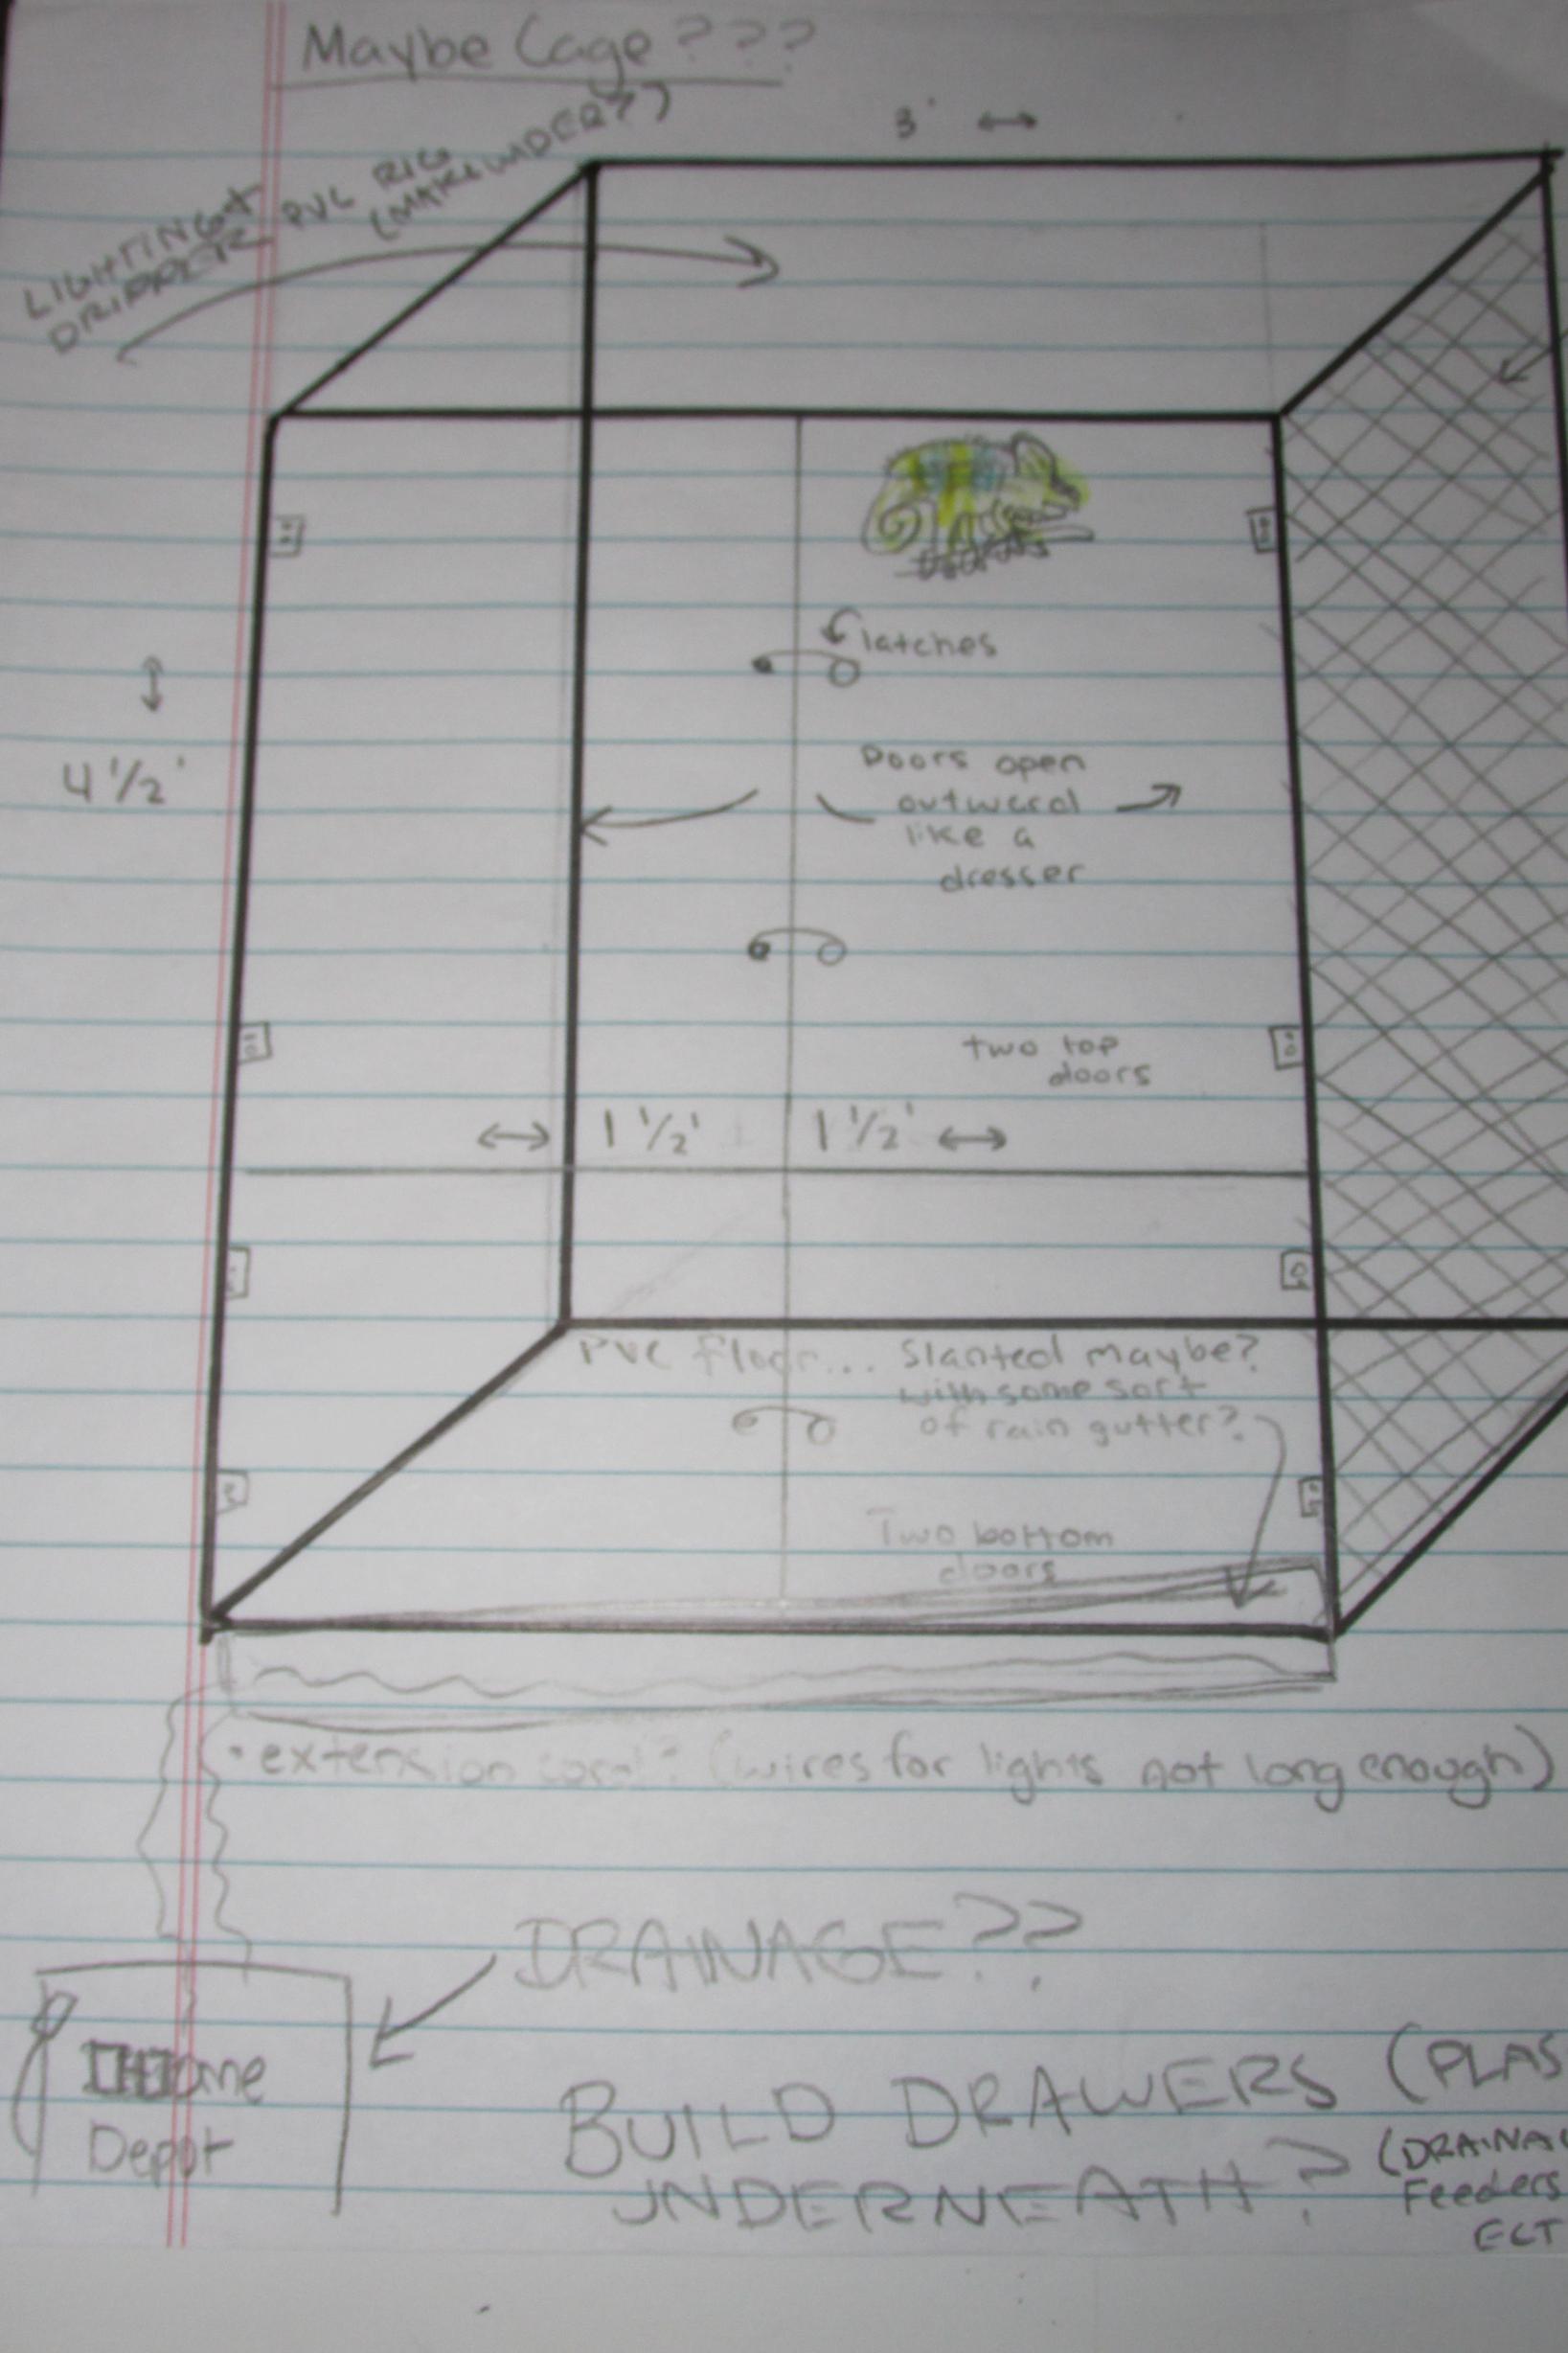 Maybe Cage???
3' ↔
LIGHTING +
DRIPPER PVC RIG
(MAKE WIDER?)
latches
4 1/2'
Doors open
outward
like a
dresser
two top
doors
1 1/2' 1 1/2'
PVC floor... Slanted maybe?
with some sort
of rain gutter?
Two bottom
doors
• extension (wires for lights not long enough)
DRAINAGE??
Home
Depot
BUILD DRAWERS (PLAS
UNDERNEATH? (DRAINA
Feeders
ECT